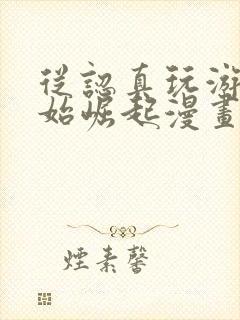 從認真玩游
始崛起漫畫
煙素馨